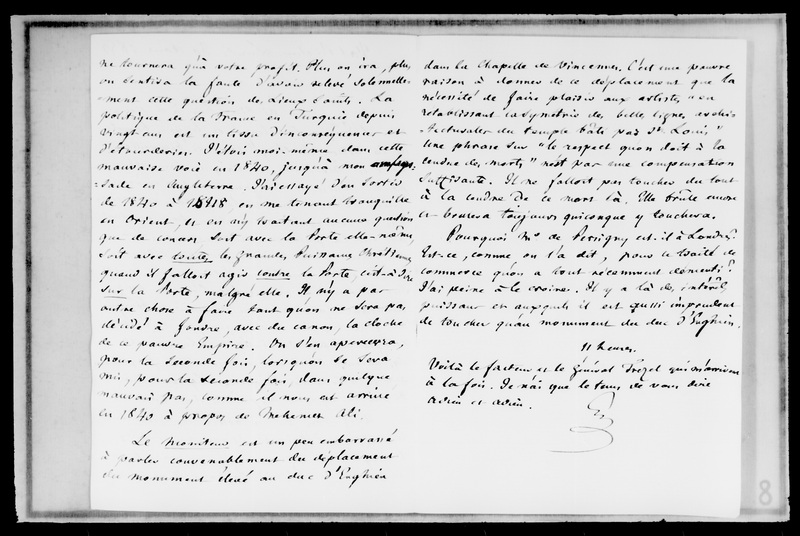 ne tournera qu'à votre profit. Plus on ira, plus
on sentira la faute d'avoir relevé solennelle-
-ment cette question des Lieux Saints. La
politique de la France en Turquie depuis
vingt ans est un tissu d'inconséquences et
d'étourderies. J'étois moi-même dans cette
mauvaise voie en 1840, jusqu'à mon ambas-
-sade en Angleterre. J'ai essayé d'en sortir
de 1840 à 1848 en me tenant tranquille
en Orient, et en n'y traitant aucune question
que de concert, soit avec la Porte elle-même,
soit avec toutes les grandes Puissances Chrétiennes
quand il falloit agir contre la Porte, c'est-à-dire
sur la Porte, malgré elle. Il n'y a pas
autre chose à faire tant qu'on ne sera pas
décidé à fondre, avec du canon, la cloche
de ce pauvre Empire. On s'en apercevra,
pour la seconde fois, lorsqu'on se sera
mis, pour la seconde fois, dans quelque
mauvais pas, comme il nous est arrivé
en 1840 à propos de Mehemet Ali.
Le Moniteur est un peu embarrassé
à parler convenablement du déplacement
du monument élevé au duc d'Enghien
dans la Chapelle de Vincennes. C'est une pauvre
raison à donner de ce déplacement que la
nécessité de faire plaisir aux artistes "en
rétablissant la symétrie des belles lignes archi-
-tecturales du temple bâti par St Louis"
Une phrase sur "le respect qu'on doit à la
cendre des morts" n'est pas une compensation
suffisante. Il ne falloit pas toucher du tout
à la cendre de ce mort là. Elle brûle encore
et brûlera toujours quiconque y touchera.
Pourquoi Mr de Persigny est-il à Londres?
Est-ce, comme on l'a dit, pour le traité de
commerce qu'on a tout récemment démenti?
J'ai peine à le croire. Il y a là des intérêts
puissants et auxquels il est aussi imprudent
de toucher qu'au monument du duc d'Enghien.
11 heures.
Voilà le facteur et le général Trézel qui m'arrivent
à la fois. Je n'ai que le tems de vous dire
adieu et adieu.
8